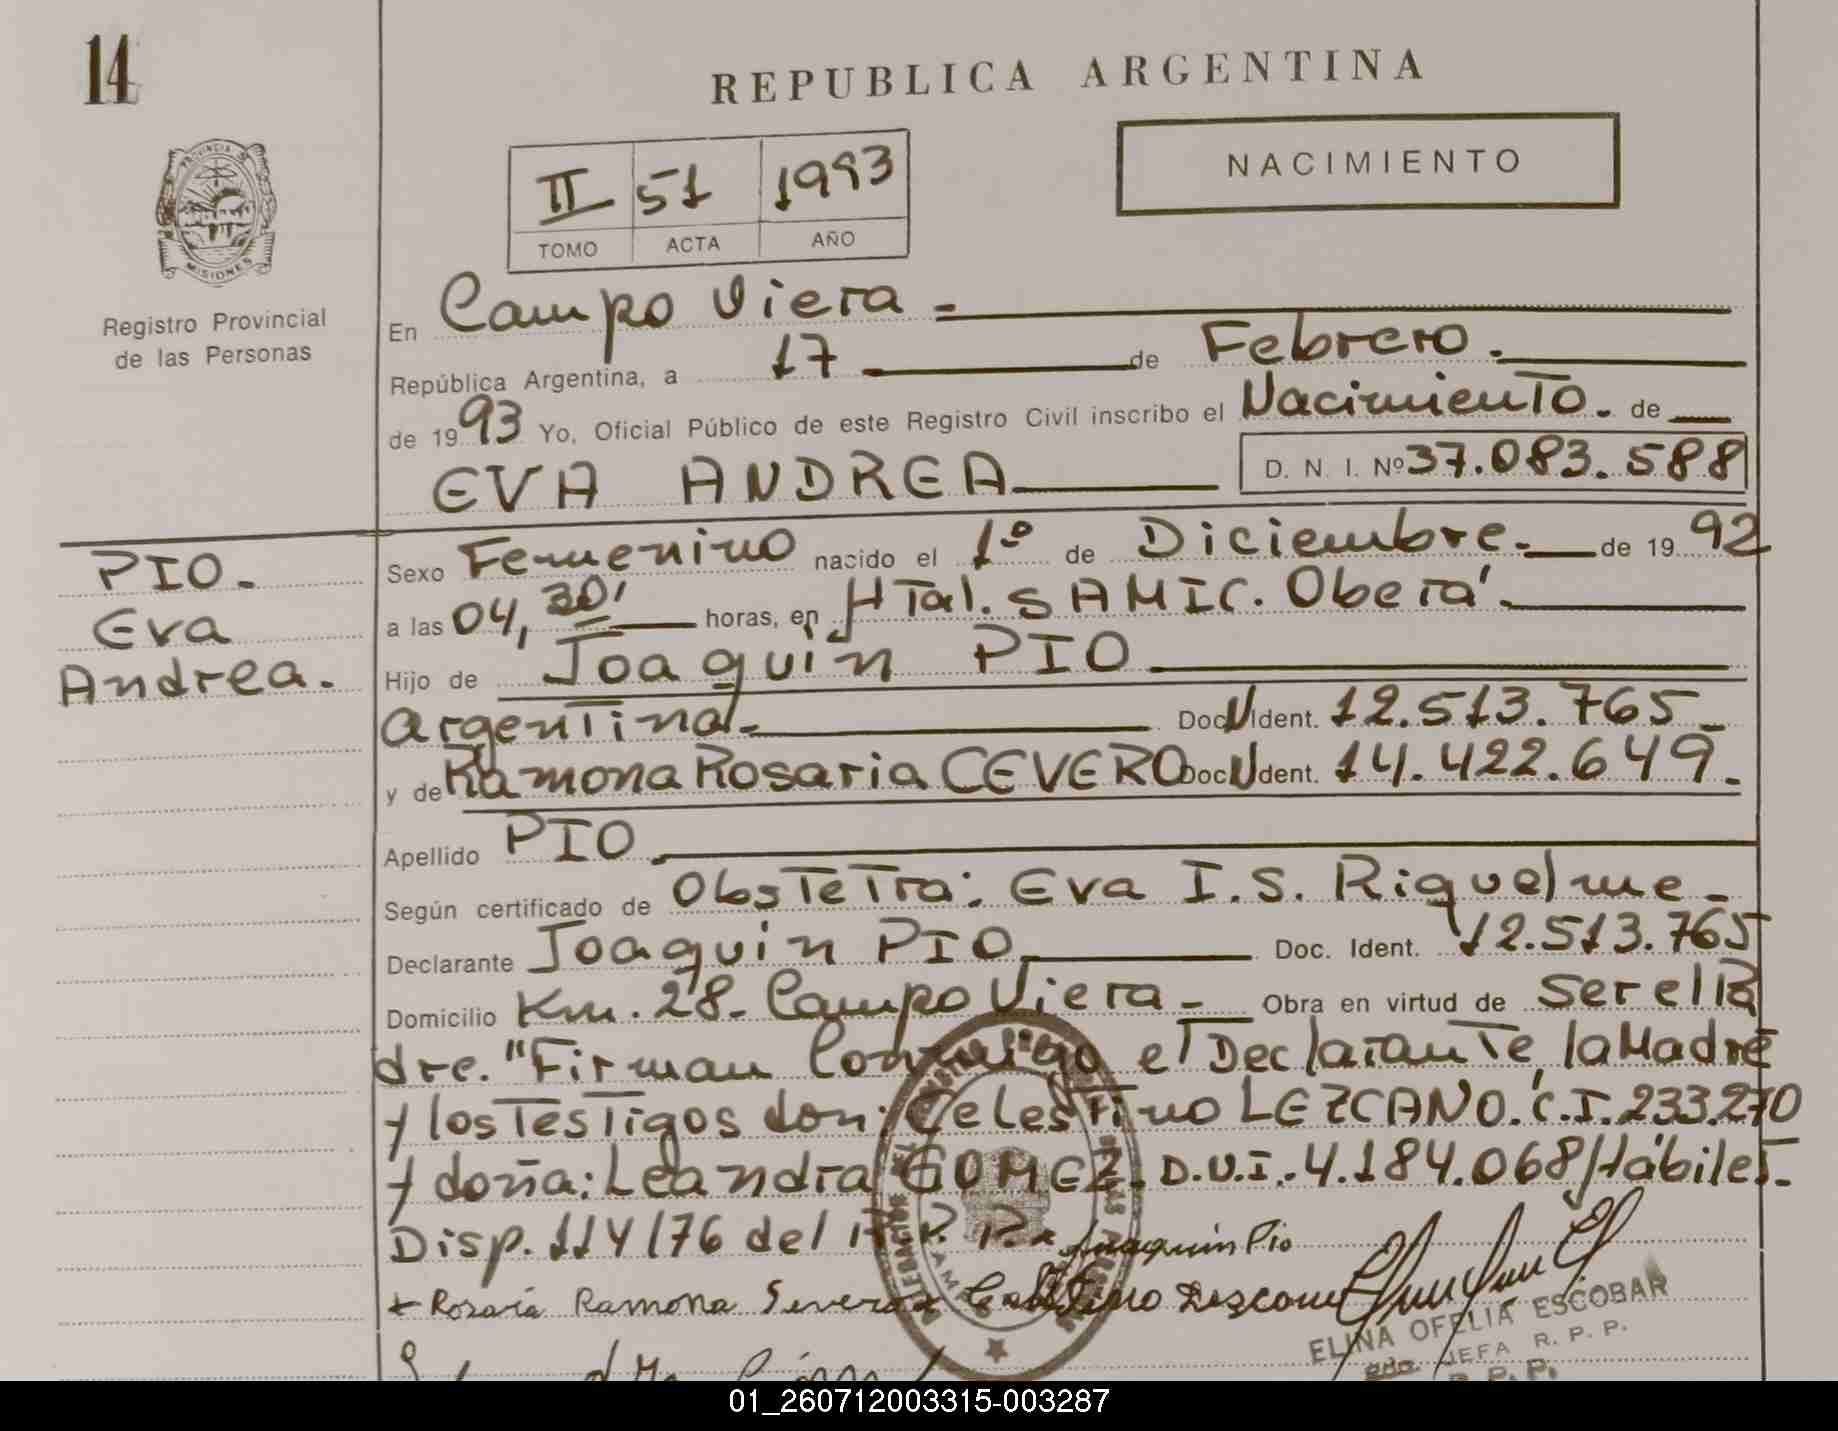 14
REPUBLICA ARGENTINA
NACIMIENTO
II 51 1993
TOMO ACTA AÑO
PROVINCIA DE
MISIONES
Registro Provincial
de las Personas
En Campo Viera -
República Argentina, a 17 de Febrero.
de 1993 Yo, Oficial Público de este Registro Civil inscribo el Nacimiento. de
EVA ANDREA D. N. I. Nº 37.083.588
PIO.
Eva
Andrea.
Sexo Femenino nacido el 1º de Diciembre. de 1992
a las 04,30' horas, en HTal. SAMIC. Oberá.
Hijo de Joaquín PIO
argentina. Doc Ident. 12.513.765
y de Ramona Rosaria CEVERO Doc Ident. 14.422.649.
Apellido PIO.
Según certificado de ObsTeTra: Eva I.S. Riquelme -
Declarante Joaquín PIO Doc. Ident. 12.513.765
Domicilio Km. 28- Campo Viera - Obra en virtud de ser el Pa
dre. "Firman Conmigo el Declarante, la Madre
y los Testigos don: Celestino LEZCANO. C.I. 233.270
y doña: Leandra GOMEZ. D.U.I. 4.184.068 Hábiles.
Disp. 114/76 del R. P. P. x Juaquin Pio
x Rosaria Ramona Severo x
ELINA OFELIA ESCOBAR
JEFA R. P. P.
R. P. P.
01_260712003315-003287